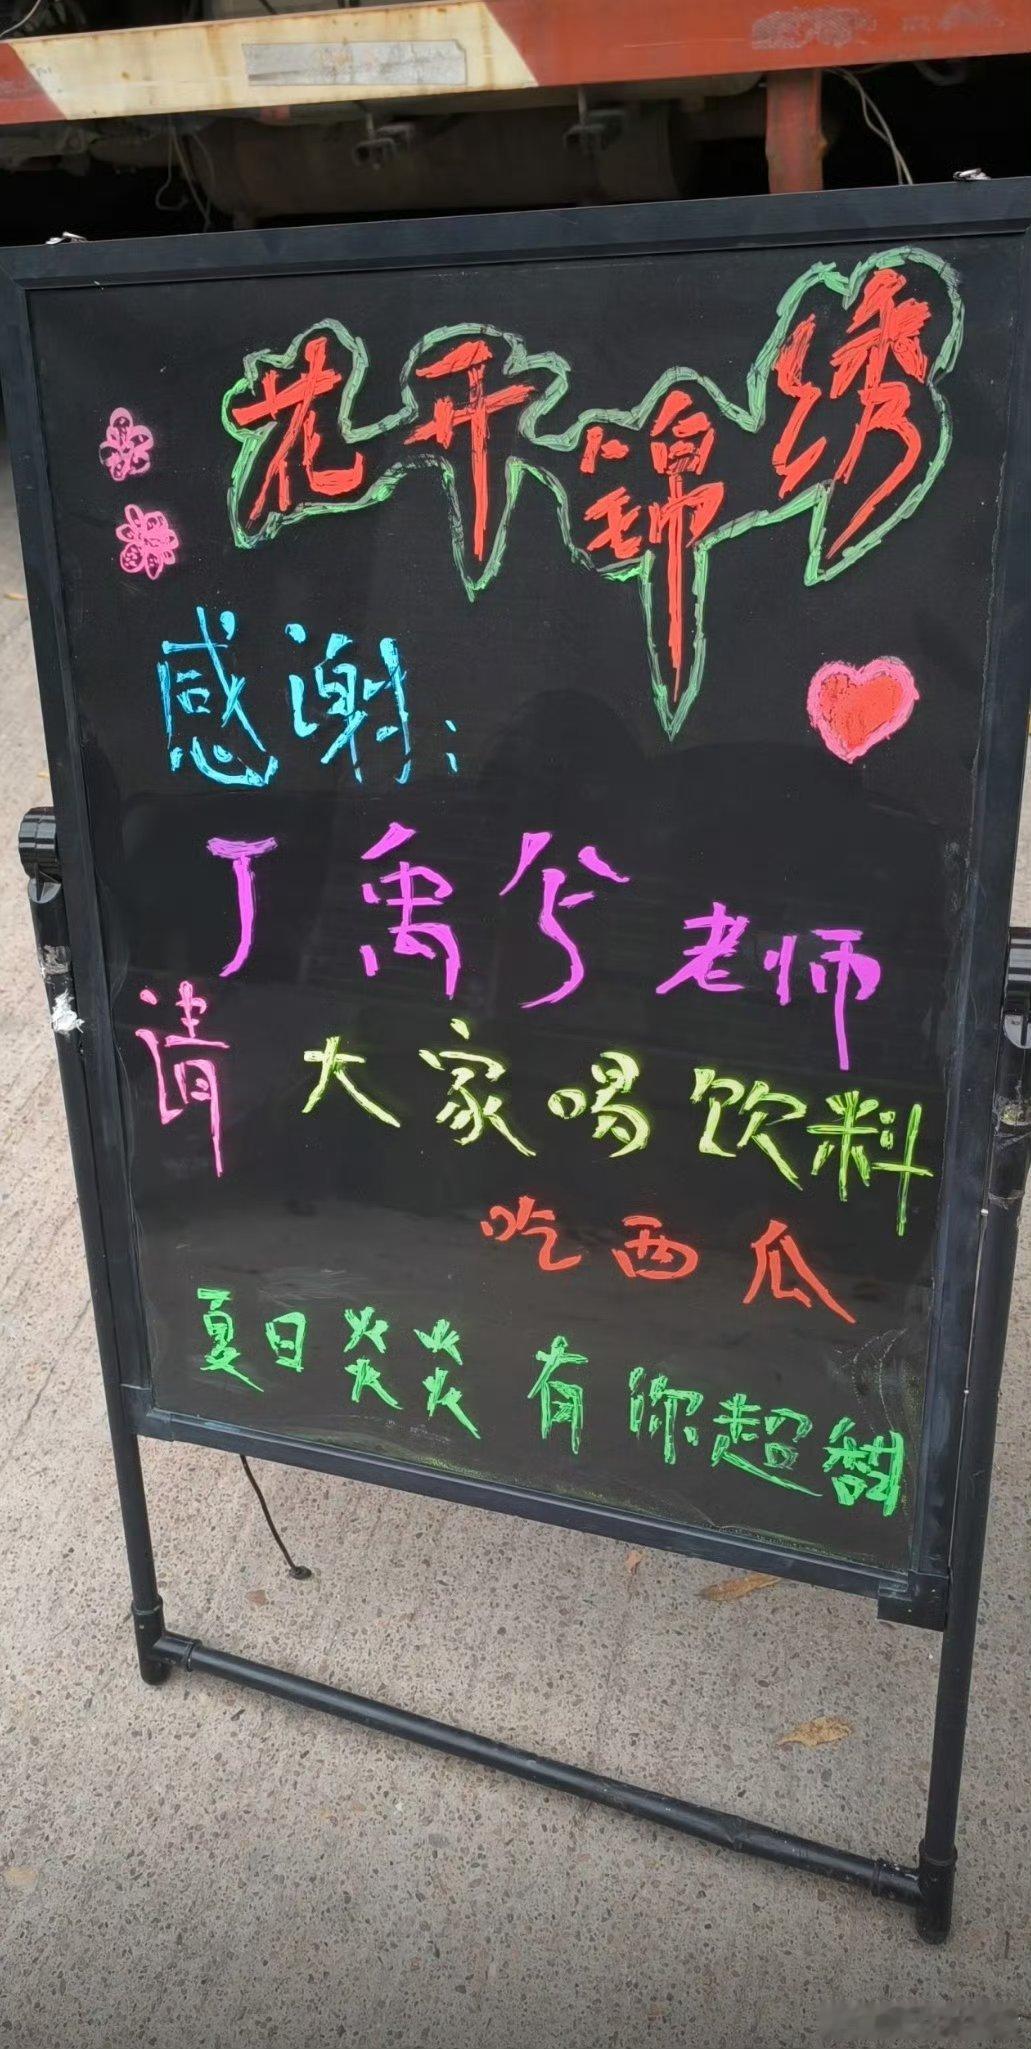 花开锦绣
感谢:
丁禹兮老师
请大家喝饮料
吃西瓜
夏日炎炎有你超甜